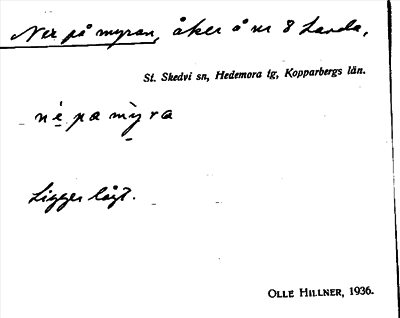 Ner på myran, åker å nr 8 Landa.
St. Skedvi sn, Hedemora tg, Kopparbergs län.
né pa mỳra
Ligger lågt.
OLLE HILLNER, 1936.